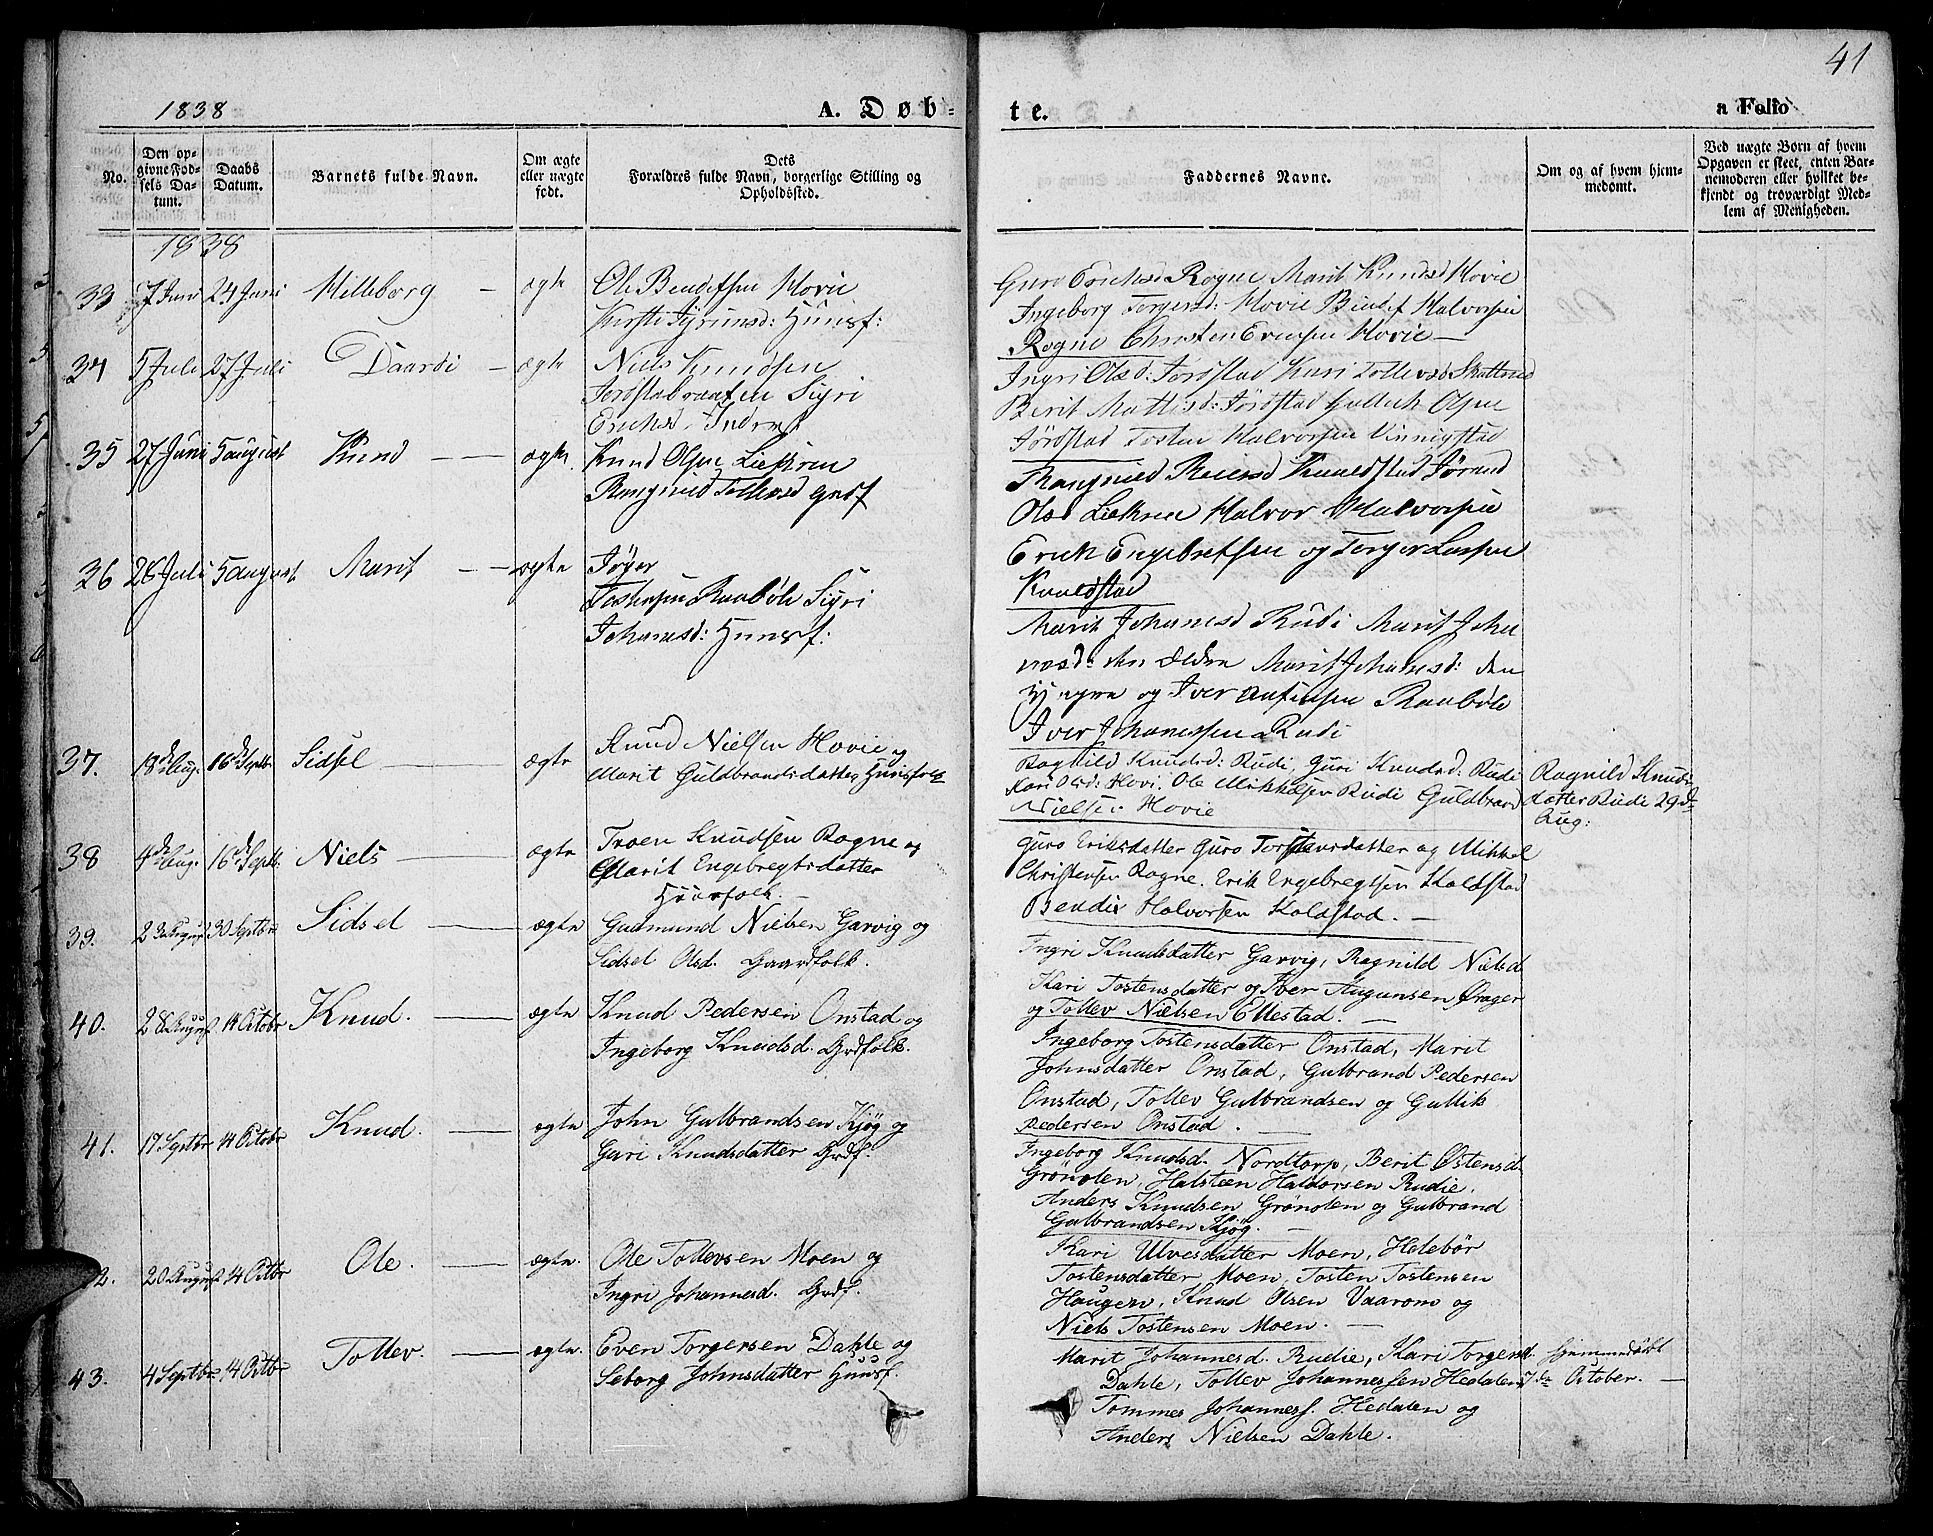 41
1838
A. Døb-
te.
a Folio
No.
Den op-
givne Fød-
sels Da-
tum.
Daabs
Datum.
Barnets fulde Navn.
Om ægte
eller uægte
født.
Dets
Forældres fulde Navn, borgerlige Stilling og
Opholdssted.
Faddernes Navne.
Om og af hvem hjem-
medømt.
Ved uægte Børn af hvem
Opgaven er skeet, enten Bar-
nemoderen eller hvilket be-
kjendt og troværdigt Med-
lem af Menigheden.
1838
33 7 Juni 24 Juni Hilleborg — ægte Ole Hovie
Guro Ericksd Rogne Marit Knudsd Hovie
Ingeborg Torgersd: Hovie Bendix Halvorsen
Rogne Christen Evensen Hovie —
34 5 Juli 27 Juli Daardi — ægte Niels Knudsen
Sigri
Ericksd
Ingri Olsd: Jørstad Kari Tollevsd
Berit Jørstad Gullick Olsen
Jørstad Tosten Halvorsen
35 27 Juni 5 august Knud — — ægte. Knud Olsen
Rangnild Tollevsd
Rangnild
Olsd Halvor Halvorsen
Erick Engebretsen og Torger Larsen
36 26 Juli 5 august Marit — — ægte
Raabøle Sigri
Johannesd: Huusf:
Marit Johannesd Rudi Marit Joha
nnesd: den Ældre Marit Johannesd: den
yngre og Iver Raabøle
Iver Johannessen Rudi
37. 18de Aug. 16de Septb. Sidsel —— ægte Knud Nielsen Hovie og
Marit Guldbrandsdatter Huusfolk
Ragnild Knudsd: Rudi, Guri Knudsd: Rudi
Kari Olsd: Hovi. Ole Mikkelsen Rudi Guldbrand
Nielsen Hovie
Ragnild Knuds-
datter Rudi 29de
Aug:
38 4de Aug. 16de Septb. Niels —— ægte Troen Knudsen Rogne og
Marit Engebregtsdatter
Huusfolk —
Guro Eriksdatter Guro Torstensdatter og Mikkel
Christensen Rogne. Erik Engebregtsen Koldstad
Bendix Halvorsen Koldstad. —
39. 23 August 30 Septbr Sidsel —— ægte Gudmund Nielsen Garvig og
Sidsel Olsd. Gaardfolk.
Ingri Knudsdatter Garvig, Ragnild Nielsd
Kari Tostensdatter og Iver Augunsen Øvager
og Tollev Nielsen Ellestad. —
40. 28 August 14 Octobr Knud. —— ægte Knud Pedersen Onstad og
Ingeborg Knudsd. Grdfolk.
Ingeborg Tostensdatter Onstad, Marit
Johnsdatter Onstad, Gulbrand Pedersen
Onstad, Tollev Gulbrandsen og Gullik
Pedersen Onstad. —
41. 17 Septbr 14 Octobr Knud. —— ægte John Gulbrandsen Kjøg og
Guri Knudsdatter Grdf.
Ingeborg Knudsd. Nordtorp, Berit Østensd.
Grønolen, Halsteen Haldorsen Rudie,
Anders Knudsen Grønolen og Gulbrand
Gulbrandsen Kjøg. —
2. 20 August 14 Octbr Ole. —— ægte. Ole Tollevsen Moen og
Ingri Johannesd. Grdf.
Kari Ulvesdatter Moen, Helebør
Tostensdatter Moen, Tosten Tostensen
Haugen, Knud Olsen Vaarom og
Niels Tostensen Moen. —
43. 4 Septbr 14 Octbr Tollev. —— ægte. Even Torgersen Dahle og
Seborg Johnsdatter Huusf.
Marit Johannesd. Rudie, Kari Torgersd.
Dahle, Tollev Johannessen Hedalen,
Tommes Johannesf. Hedalen og
Anders Nielsen Dahle.
hjemmedøbt
7de October. —